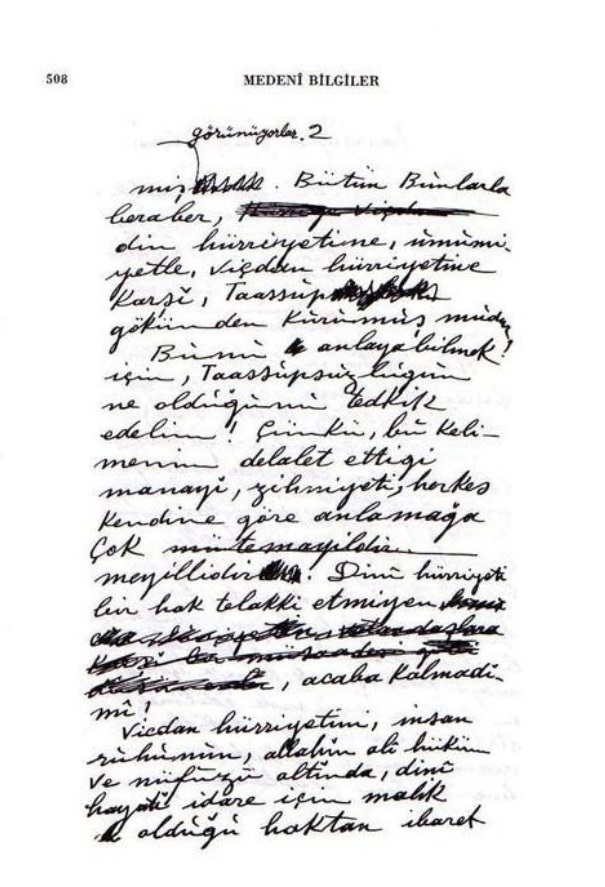 508 MEDENÎ BİLGİLER
görünüyorlar. 2
miş . Bütün Bunlarla
beraber,
din hürriyetine, ûmûmi-
yetle, viçdan hürriyetine
Karşı, Taassüp
gökünden Kürümüş müdür?
Bûnû anlayabilmek
için, Taassüpsüzlûgûn
ne oldûgûnû tedkik
edelim! Çünkü, bû Keli-
menin delalet ettigi
manayı, zihniyeti, herkes
Kendine göre anlamağa
Çok mütemayildir.
meyillidir . Dinî hürriyeti
bir hak telakki etmiyen
, acaba Kalmadı-
mı!
Vicdan hürriyetini, insan
rûhûnûn, allahın ali hüküm
ve nüfûzû altında, dinî
hayatı idare için malik
oldûgû haktan ibaret